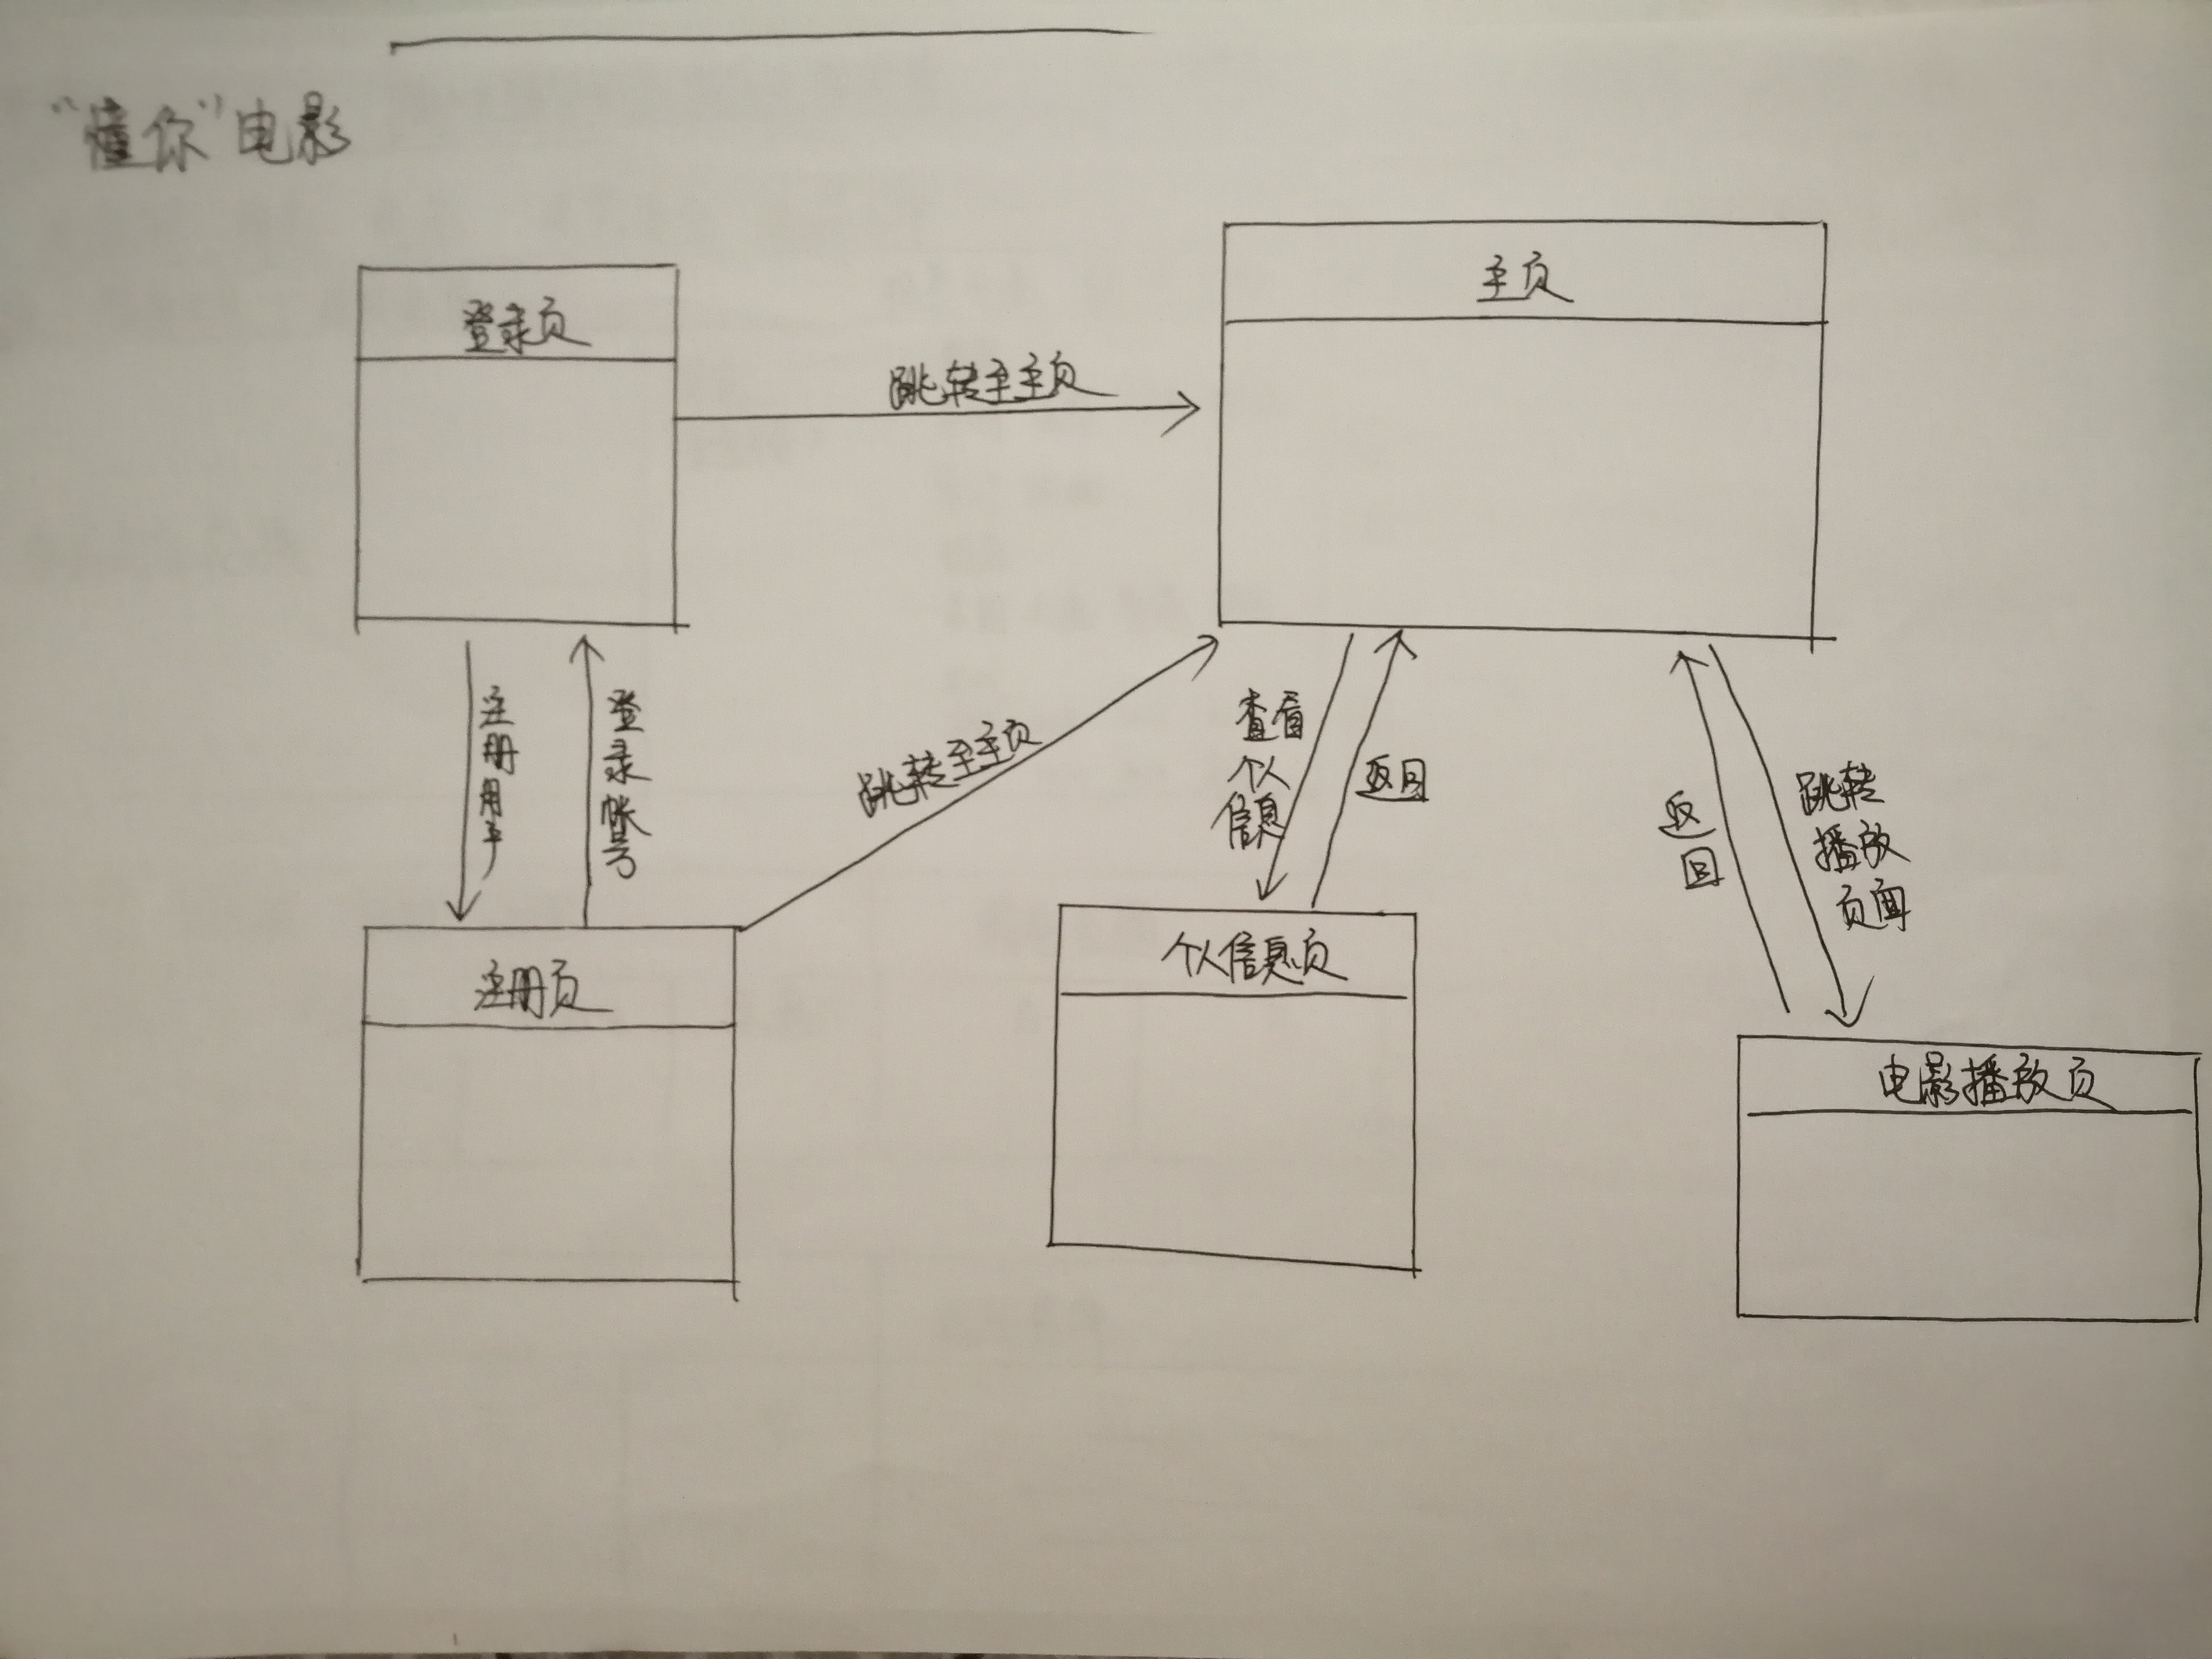 “懂你”电影
登录页
主页
跳转至主页
注册用户
登录帐号
跳转至主页
查看
个人
信息
返回
返
回
跳转
播放
页面
注册页
个人信息页
电影播放页